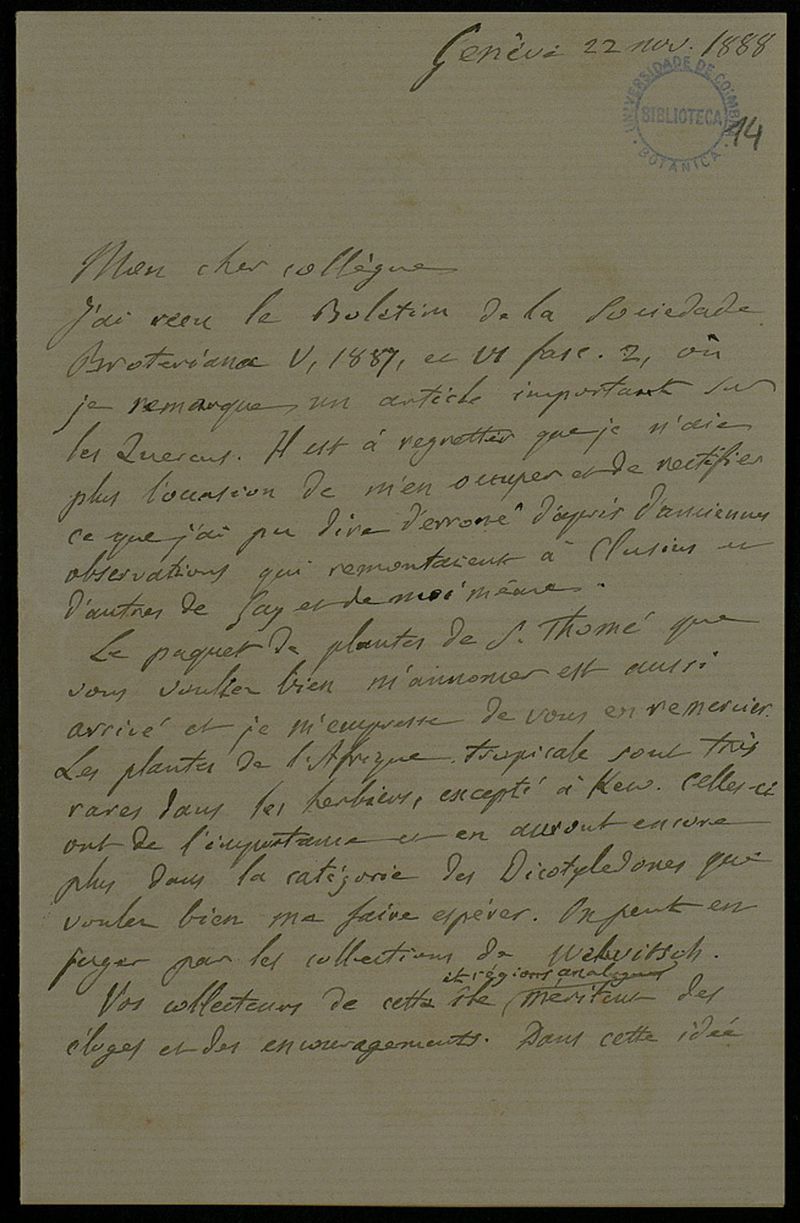 Genève 22 nov. 1888
UNIVERSIDADE DE COIMBRA
BIBLIOTECA
BOTANICA
14
Mon cher collègue
J'ai reçu le Boletim de la Sociedade
Broteriana V, 1887, et VI fasc. 2, où
je remarque un article important sur
les Quercus. Il est à regretter que je n'aie
plus l'occasion de m'en occuper et de rectifier
ce que j'ai pu dire d'erroné d'après d'anciennes
observations qui remontaient à Clusius et
d'autres de Gay et de moi même.
Le paquet de plantes de S. Thomé que
vous vouliez bien m'annoncer est aussi
arrivé et je m'empresse de vous en remercier.
Les plantes de l'Afrique tropicale sont très
rares dans les herbiers, excepté à Kew. Celles-ci
ont de l'importance et en auront encore
plus dans la catégorie des Dicotyledones que
voulez bien me faire espérer. On peut en
juger par les collections de Welwitsch.
et régions analogues
Vos collecteurs de cette île méritent des
éloges et des encouragements. Dans cette idée